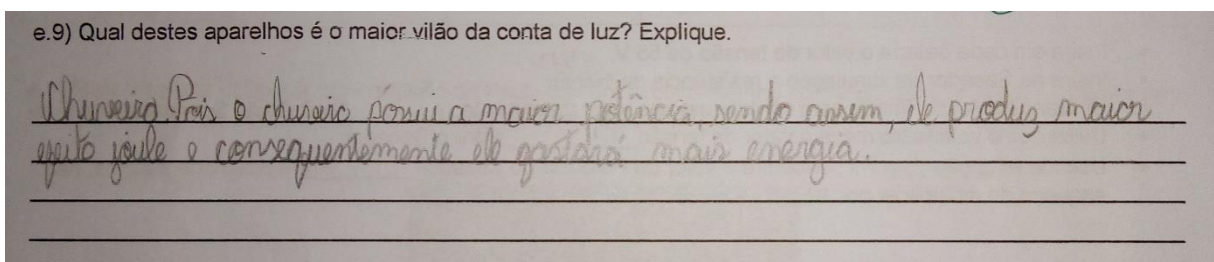 e.9) Qual destes aparelhos é o maior vilão da conta de luz? Explique.
Chuveiro. Pois o chuveiro possui a maior potência, sendo assim, ele produz maior
efeito joule e consequentemente ele gastará mais energia.